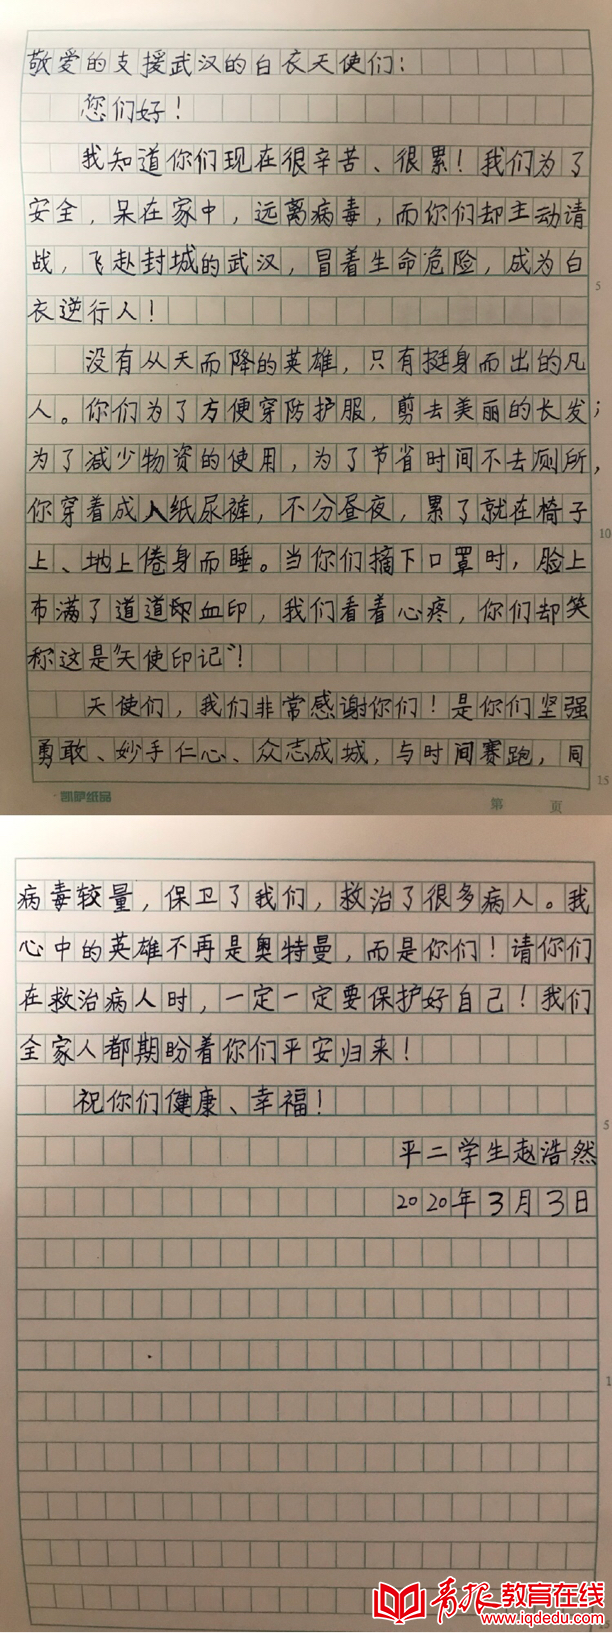 敬爱的支援武汉的白衣天使们：
您们好！
我知道你们现在很辛苦、很累！我们为了
安全，呆在家中，远离病毒，而你们却主动请
战，飞赴封城的武汉，冒着生命危险，成为白
衣逆行人！
没有从天而降的英雄，只有挺身而出的凡
人。你们为了方便穿防护服，剪去美丽的长发；
为了减少物资的使用，为了节省时间不去厕所，
你穿着成人纸尿裤，不分昼夜，累了就在椅子
上、地上倦身而睡。当你们摘下口罩时，脸上
布满了道道血印，我们看着心疼，你们却笑
称这是“天使印记”！
天使们，我们非常感谢你们！是你们坚强
勇敢、妙手仁心、众志成城，与时间赛跑，同
凯萨纸品 第 页
病毒较量，保卫了我们，救治了很多病人。我
心中的英雄不再是奥特曼，而是你们！请你们
在救治病人时，一定一定要保护好自己！我们
全家人都期盼着你们平安归来！
祝你们健康、幸福！
平二学生赵浩然
2020年3月3日
青报教育在线
www.iqdedu.com